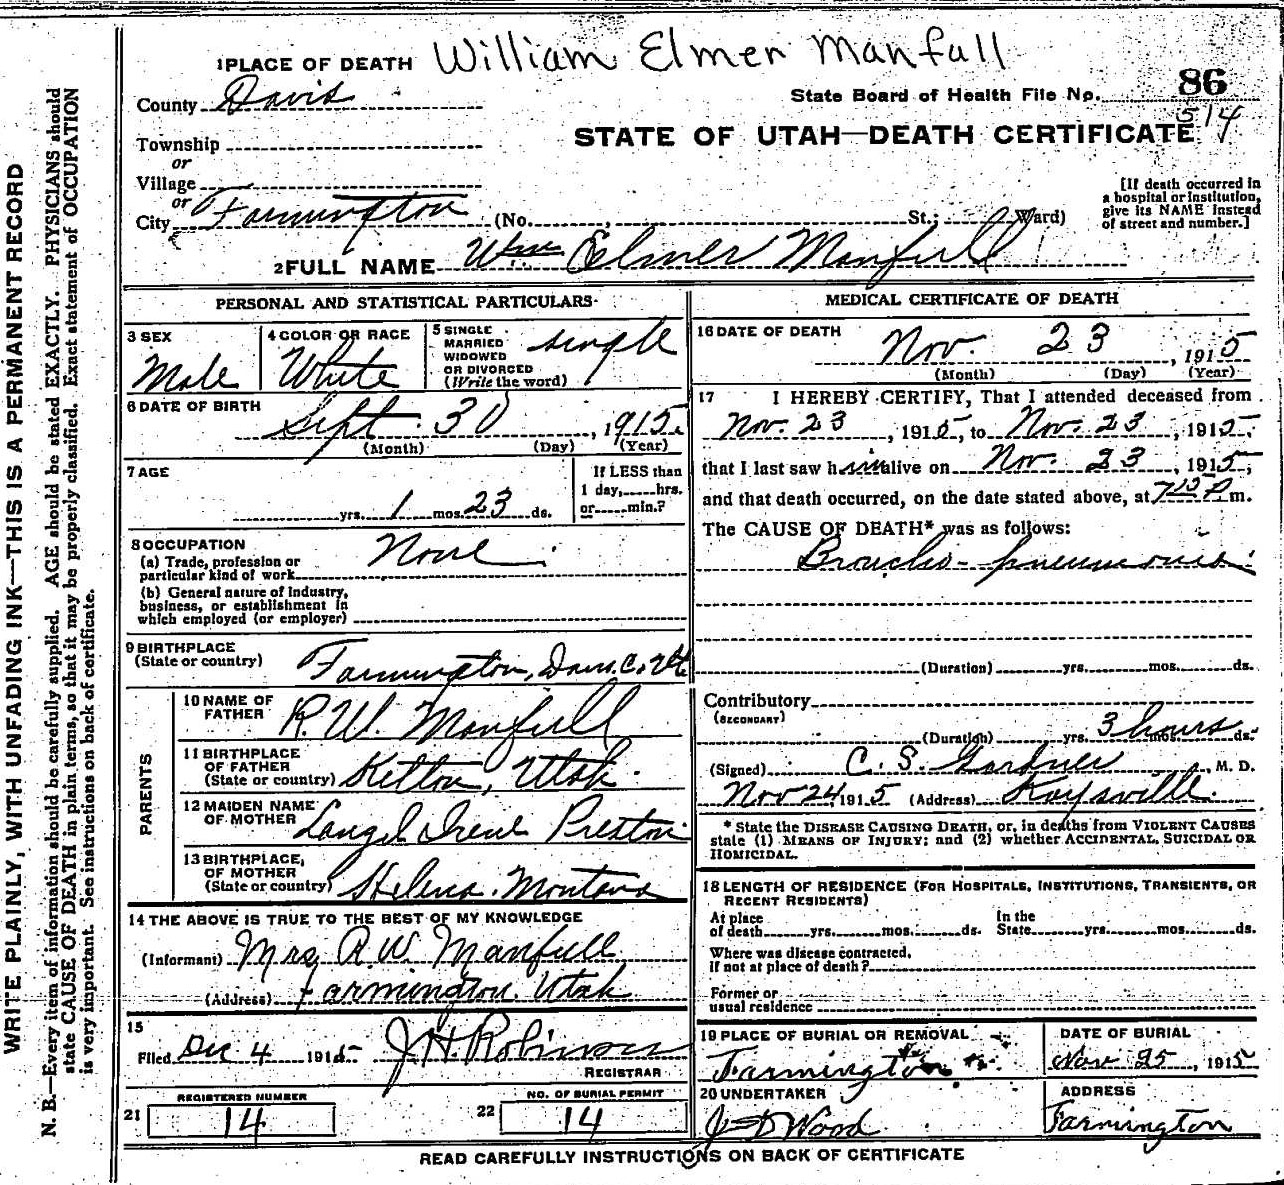 William Elmer Manfull
1 PLACE OF DEATH
County Davis
State Board of Health File No. 86
514
Township
STATE OF UTAH—DEATH CERTIFICATE
or
Village
or
City Farmington (No. , St.; Ward)
[If death occurred in
a hospital or institution,
give its NAME instead
of street and number.]
2 FULL NAME Wm Elmer Manfull
PERSONAL AND STATISTICAL PARTICULARS
3 SEX
Male
4 COLOR OR RACE
White
5 SINGLE
MARRIED
WIDOWED
OR DIVORCED
(Write the word)
single
6 DATE OF BIRTH
Sept. 30, 1915.
(Month) (Day) (Year)
7 AGE
yrs. 1 mos. 23 ds.
If LESS than
1 day, hrs.
or min.?
8 OCCUPATION
None
(a) Trade, profession or
particular kind of work
(b) General nature of Industry,
business, or establishment in
which employed (or employer)
9 BIRTHPLACE
(State or country) Farmington, Davis Co. Ut
PARENTS
10 NAME OF
FATHER R. W. Manfull
11 BIRTHPLACE
OF FATHER
(State or country) Kelton, Utah.
12 MAIDEN NAME
OF MOTHER Irene Preston
13 BIRTHPLACE,
OF MOTHER
(State or country) Helena, Montana
14 THE ABOVE IS TRUE TO THE BEST OF MY KNOWLEDGE
(Informant) Mrs. R. W. Manfull
(Address) Farmington. Utah
15
Filed Dec 4 1915 J. H. Robinson
REGISTRAR
21
REGISTERED NUMBER
14
22
NO. OF BURIAL PERMIT
14
MEDICAL CERTIFICATE OF DEATH
16 DATE OF DEATH
Nov. 23, 1915
(Month) (Day) (Year)
17 I HEREBY CERTIFY, That I attended deceased from
Nov. 23, 1915, to Nov. 23, 1915,
that I last saw him alive on Nov. 23, 1915,
and that death occurred, on the date stated above, at 7 15 P m.
The CAUSE OF DEATH* was as follows:
Broncho-pneumonia.
(Duration) yrs. mos. ds.
Contributory
(SECONDARY)
(Duration) yrs. 3 hours mos. ds.
(Signed) C. S. Gardner, M. D.
Nov 24, 1915 (Address) Kaysville.
* State the DISEASE CAUSING DEATH, or, in deaths from VIOLENT CAUSES
state (1) MEANS OF INJURY; and (2) whether ACCIDENTAL, SUICIDAL OR
HOMICIDAL.
18 LENGTH OF RESIDENCE (FOR HOSPITALS, INSTITUTIONS, TRANSIENTS, OR
RECENT RESIDENTS)
At place
of death yrs. mos. ds.
In the
State yrs. mos. ds.
Where was disease contracted,
if not at place of death?
Former or
usual residence
19 PLACE OF BURIAL OR REMOVAL
Farmington
DATE OF BURIAL
Nov 25, 1915
20 UNDERTAKER
J D Wood
ADDRESS
Farmington
READ CAREFULLY INSTRUCTIONS ON BACK OF CERTIFICATE
WRITE PLAINLY, WITH UNFADING INK—THIS IS A PERMANENT RECORD
N. B.—Every item of information should be carefully supplied. AGE should be stated EXACTLY. PHYSICIANS should
state CAUSE OF DEATH in plain terms, so that it may be properly classified. Exact statement of OCCUPATION
is very important. See instructions on back of certificate.